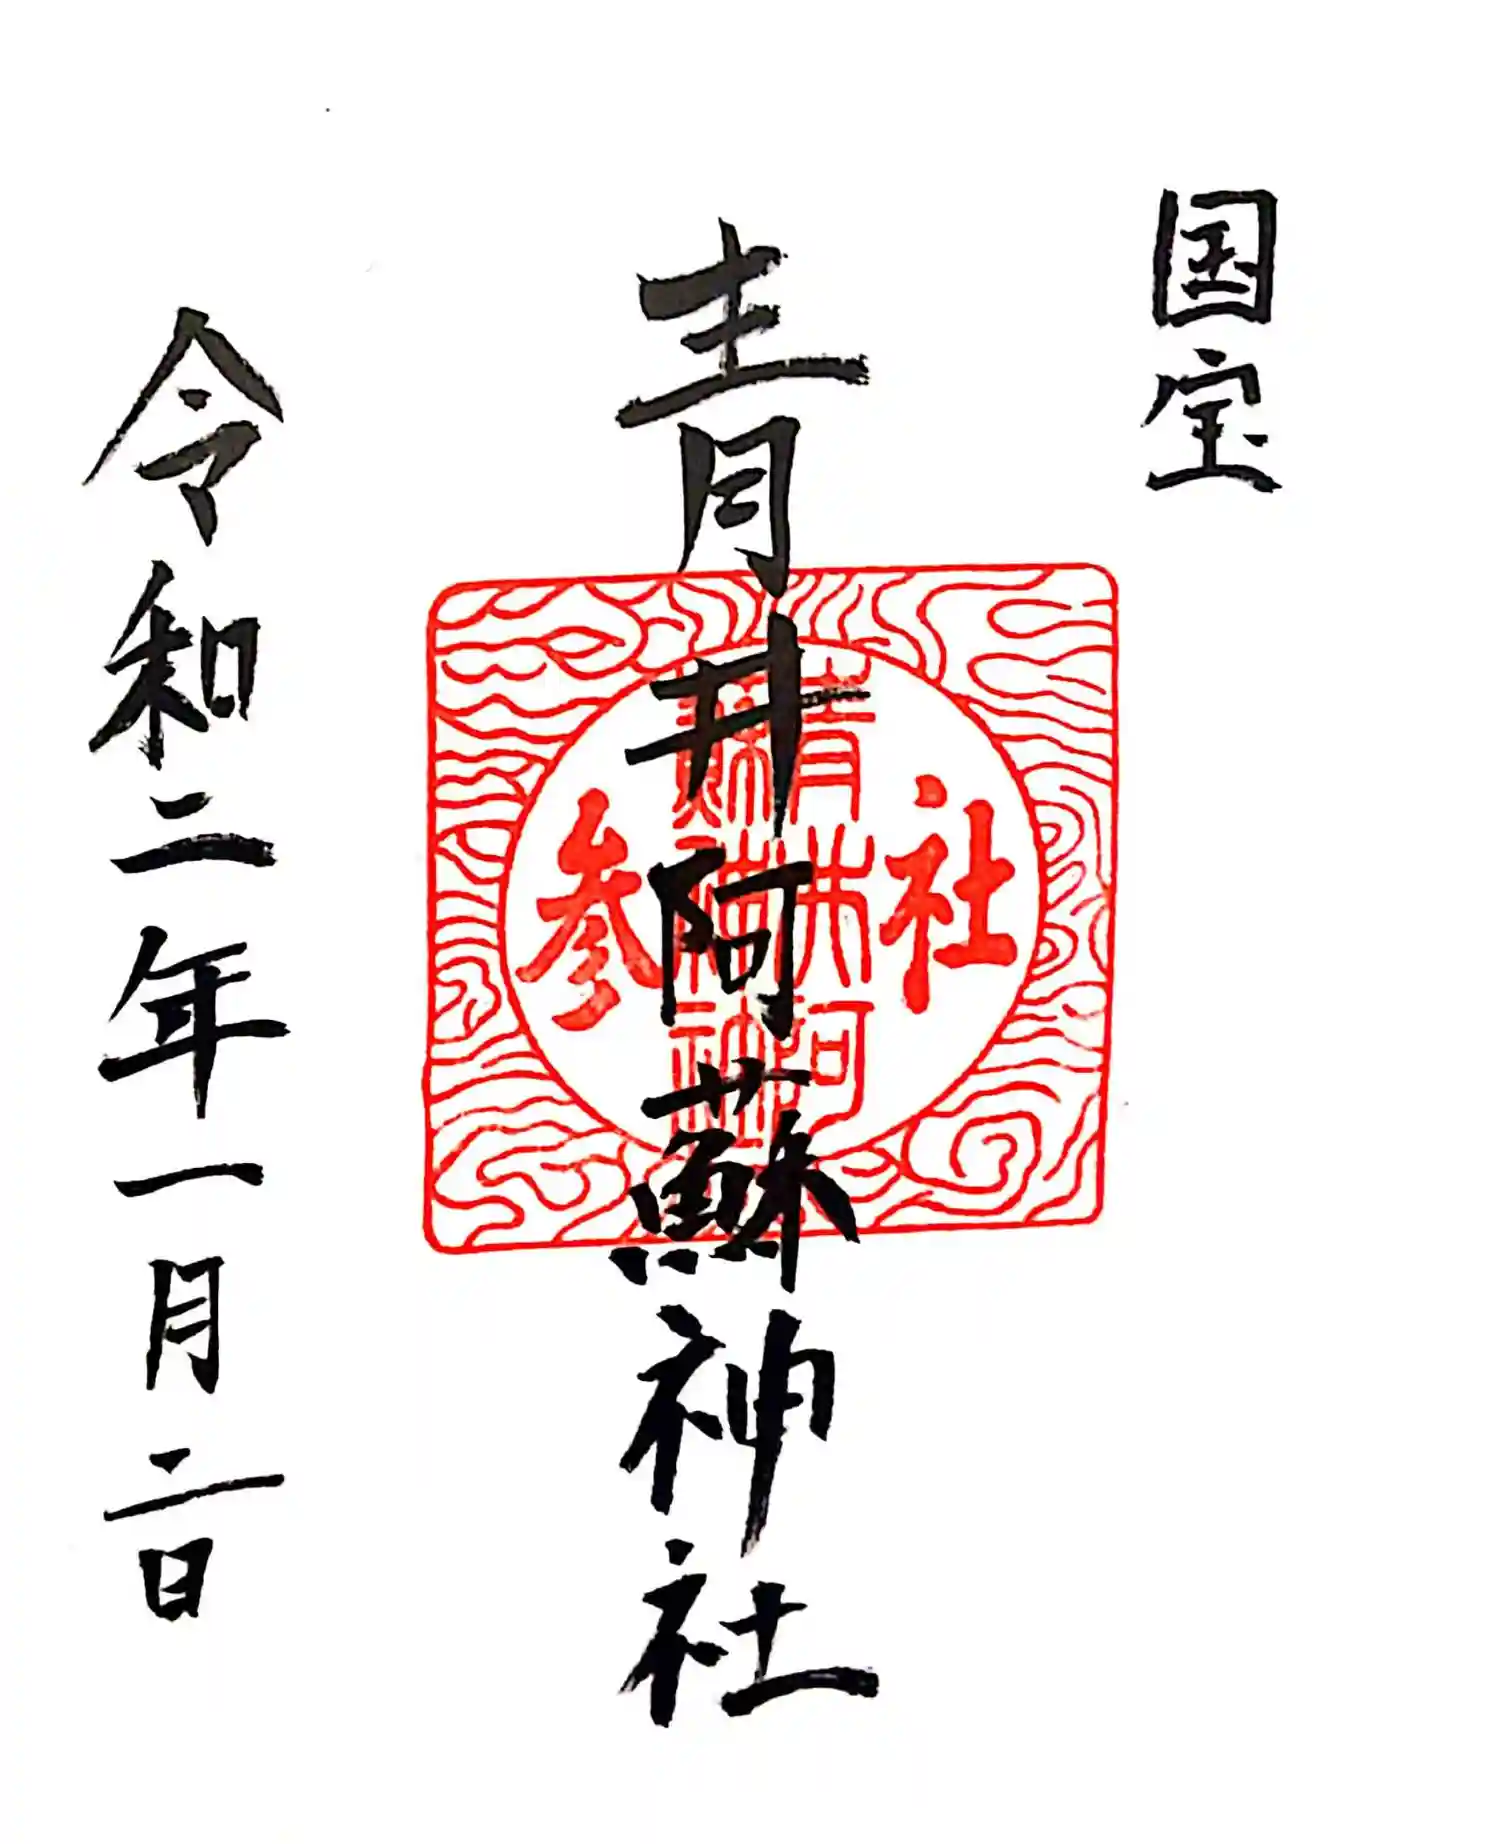 国宝
青井阿蘇神社
社参
青井阿蘇神社
令和二年一月二日